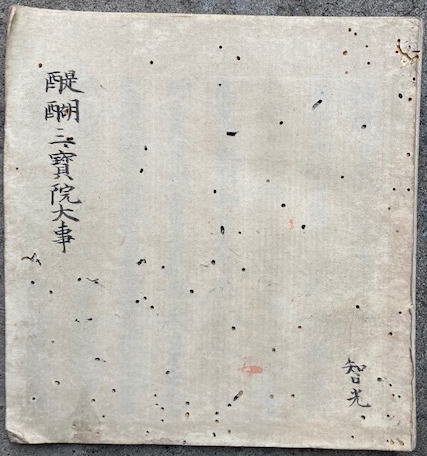 醍醐三寶院大事
智光